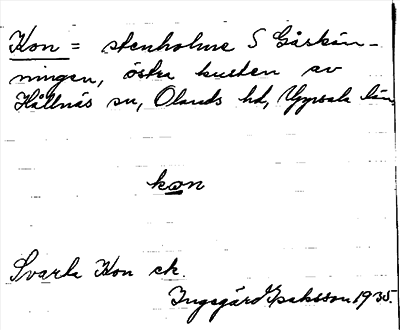 Kon = stenholme S Gåskän-
ningen, östra kusten av
Hållnäs sn, Olands hd, Uppsala län.
kon
Svarta Kon ek.
Ingegärd Isaksson 1935.